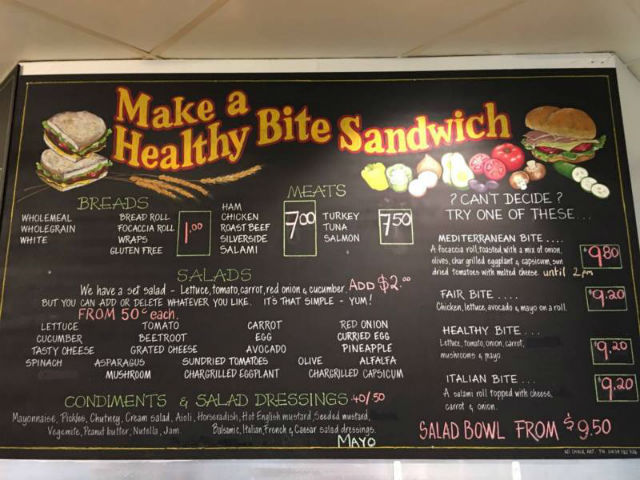 Make a
Healthy Bite Sandwich
BREADS
WHOLEMEAL
WHOLEGRAIN
WHITE
BREAD ROLL
FOCACCIA ROLL
WRAPS
GLUTEN FREE
1.00
MEATS
HAM
CHICKEN
ROAST BEEF
SILVERSIDE
SALAMI
7.00
TURKEY
TUNA
SALMON
7.50
SALADS
We have a set salad - Lettuce, tomato, carrot, red onion & cucumber. ADD $2.00
BUT YOU CAN ADD OR DELETE WHATEVER YOU LIKE. IT'S THAT SIMPLE - YUM!
FROM 50c each.
LETTUCE TOMATO CARROT RED ONION
CUCUMBER BEETROOT EGG CURRIED EGG
TASTY CHEESE GRATED CHEESE AVOCADO PINEAPPLE
SPINACH ASPARAGUS SUNDRIED TOMATOES OLIVE ALFALFA
MUSHROOM CHARGRILLED EGGPLANT CHARGRILLED CAPSICUM
CONDIMENTS & SALAD DRESSINGS 40/50
Mayonnaise, Pickles, Chutney, Cream salad, Aioli, Horseradish, Hot English mustard, Seeded mustard,
Vegemite, Peanut butter, Nutella, Jam Balsamic, Italian, French & Caesar salad dressings.
MAYO
? CAN'T DECIDE ?
TRY ONE OF THESE...
MEDITERRANEAN BITE....
A focaccia roll toasted with a mix of onion,
olives, char grilled eggplant & capsicum, sun
dried tomatoes with melted cheese. until 2pm
$9.80
FAIR BITE....
Chicken, lettuce, avocado & mayo on a roll.
$9.20
HEALTHY BITE....
Lettuce, tomato, onion, carrot,
mushrooms & mayo
$9.20
ITALIAN BITE...
A salami roll topped with cheese,
carrot & onion.
$9.20
SALAD BOWL FROM $9.50